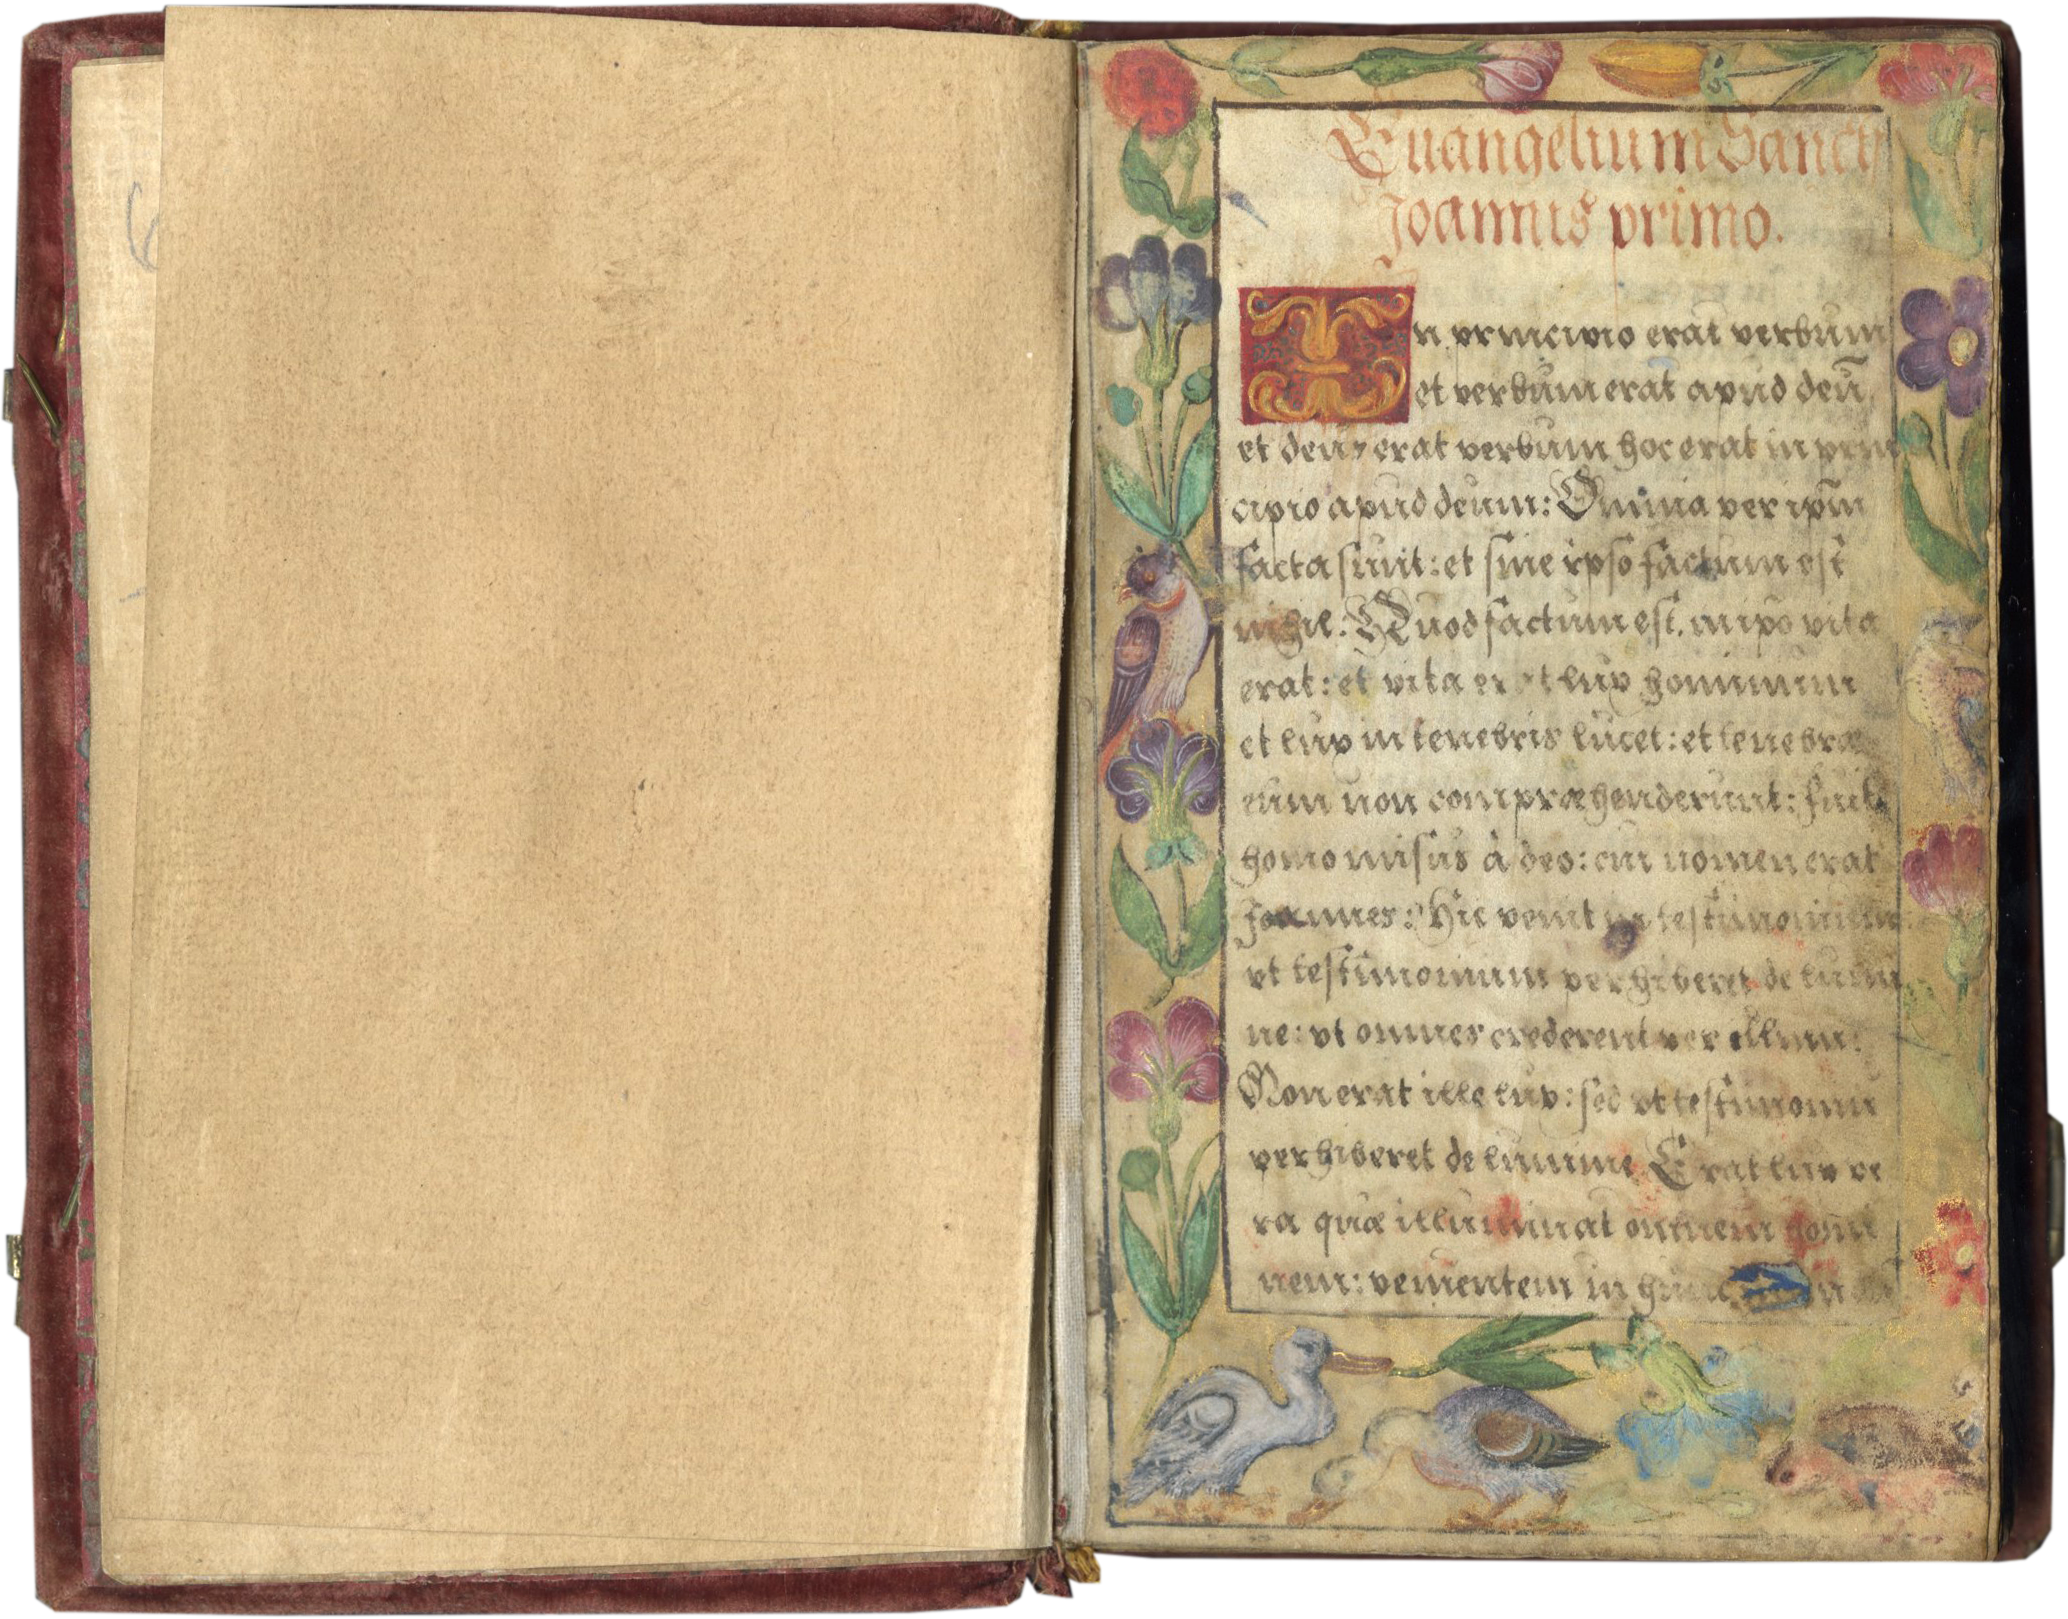 Euangelium Sancti
Joannis primo.
In principio erat verbum
et verbum erat apud deū
et deus erat verbum hoc erat in prin
cipio apud deum: Omnia per ipm̄
facta sunt: et sine ipso factum est
nihil: Quod factum est, in ipo vita
erat: et vita erat lux hominum
et lux in tenebris lucet: et tenebræ
eum non compræhenderunt: fuit
homo misus à deo: cui nomen erat
Joannes: Hic venit in testimonium:
vt testimonium perhiberet de lumi
ne: vt omnes crederent per illum:
Non erat ille lux: sed vt testimoniū
perhiberet de lumine Erat lux ve
ra quæ illuminat omnem homi
nem: venientem in hunc